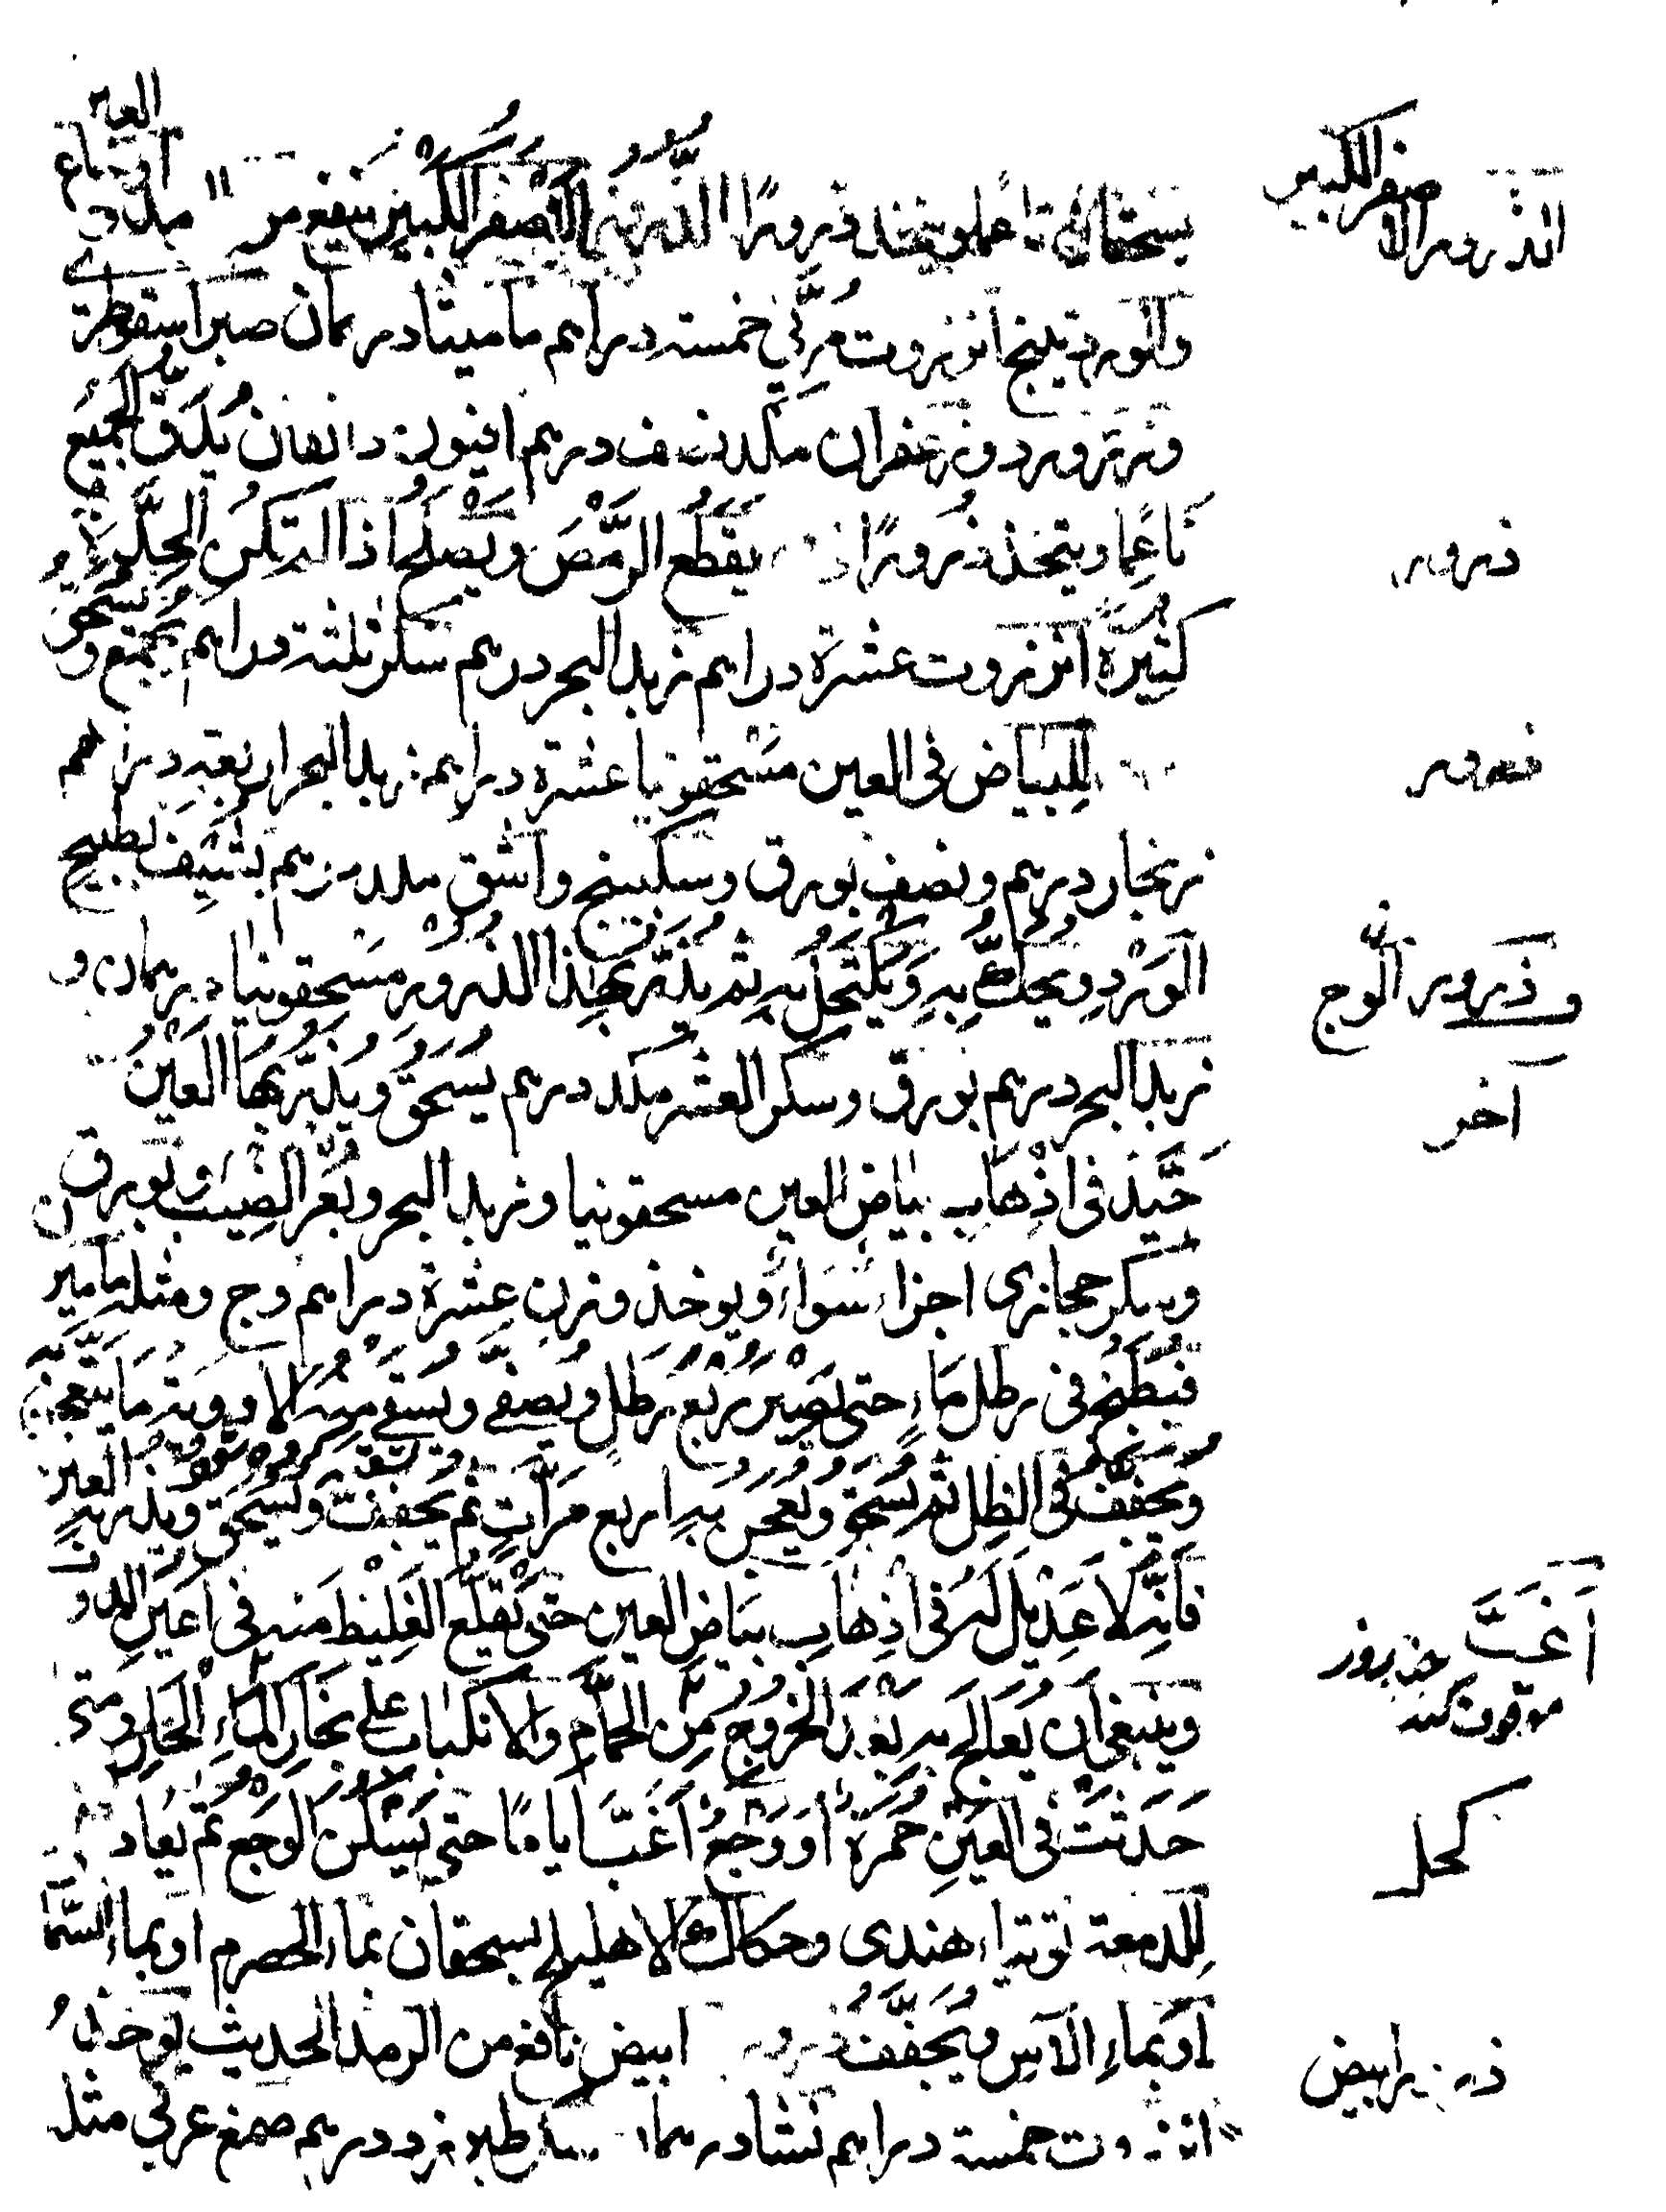 العين
الذرور الاصفر الكبير
يسحقان ناعما ويتخذ ذرورًا الذَّرُورُ الاَصْفَر الكَبِيْرُ ينفع من
والوردينج انزروت مُربّي خمسة دراهم ماميثا درهمان صبر اسقوطرة
وبزر ورد وزعفران مكد نصف درهم افيون دانقان يُدَق الجَمِيْع
ناعِما ويتخذ ذرورًا يَقْطَعُ الرَّمَصَ ويَصْلُح اذا لم تكن الحِدّة
ذرور
كثِيْرةً انزروت عشرة دراهم زبد البحر درهم سكر ثلثة دراهم يجمع ويسحق
ذرور
لِلبياض في العين مسْحقونيا عشرة دراهم زبد البحر اربعة دراهم
زنجار درهم ونصف بورق وسكبينج واشق مكد درهم يشيف بطبيخ
الوَرْد ويحكّ بِهِ ويَكْتَحِلُ بِه ثم يذر بهذا الذرور مسْحقونيا درهمان و
وذرور الوج
زبد البحر درهم بورق وسكر العشر مكد درهم يُسْحَق ويُذَرّ بهَا العَيْن
آخر
جَيّد في اذْهَاب بياض العين مسحقونيا وزبد البحر وبَعْر الضب وبورق
وسكر حجازى اجزاء سَوَاءً ويوخذ وزن عشرة دراهم وج ومثله ماميران
فيُطْبَخ في رطل مَاءٍ حتى يَصِيْر رُبْع رَطل ويُصَفّى ويُسقى منه الادوية مَا يَنْعَجِن
ويُجفّف في الظِل ثم يُسْحَق ويُعْجَن بِهِ اربع مَرّاتٍ ثم يُجَفّف ويُسْحَق ويذر به العين
فانّه لا عَدِيْل له في اذْهَاب بيَاض العين حتى يقلَع الغَلِيْظ منه في اعين الدواب
وينبغي ان يُعالج به بَعْدَ الخُرُوج مِن الحمّام والانكباب على بُخَار المَاءِ الحَار ومتى
اَغَبَّ
چند روز
موقوف كند
حَدَثتْ في العَيْنِ حُمْرَة اَو وَجَعٌ اَغَبَّ اياماً حتى يَسْكُنَ الوَجَع ثم يُعَاد
كحل
لِلدمعة توتياء هندى وحكاك الاهليلج يسحقان بماء الحصرم او بماء السُّمّاق
اَو بمَاءِ الآسِ ويُجَفّفُ ذرور ابيض نافع من الرمد الحديث يوخذ
ذرور ابيض
انزروت خمسة دراهم نشا درهمان سكر طبرزد درهم صمغ عربي مثله